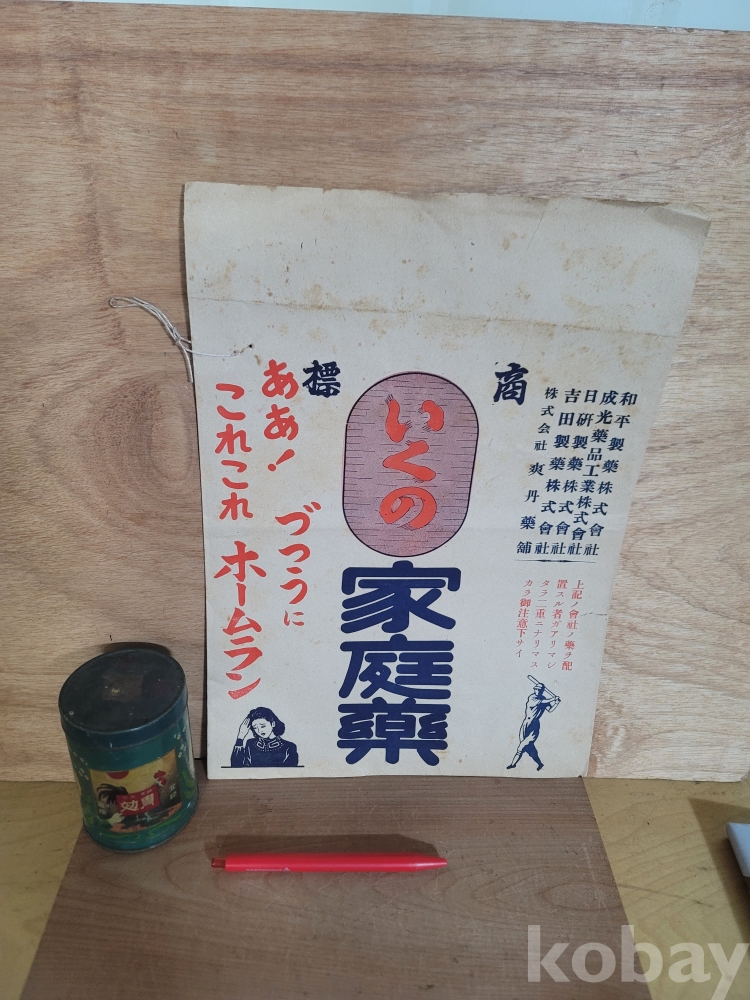 和平製藥株式會社
成光藥品工業株式會社
日研製藥株式會社
吉田製藥株式會社
株式会社爽丹藥舗
上記ノ會社ノ藥ヲ配
置スル者ガアリマシ
タラ二重ニナリマス
カラ御注意下サイ
商標
いくの
家庭藥
ああ!づつうに
これこれホームラン
kobay